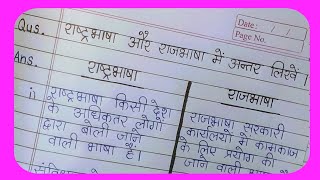 Date: / /
Page No.
Qus. राष्ट्रभाषा और राजभाषा में अन्तर लिखें।
Ans.
राष्ट्रभाषा
i) राष्ट्रभाषा किसी देश
के अधिकतर लोगो
द्वारा बोली जाने
वाली भाषा है।
राजभाषा
राजभाषा सरकारी
कार्यालयों में कामकाज
के लिए प्रयोग की
जाने वाली भाषा है